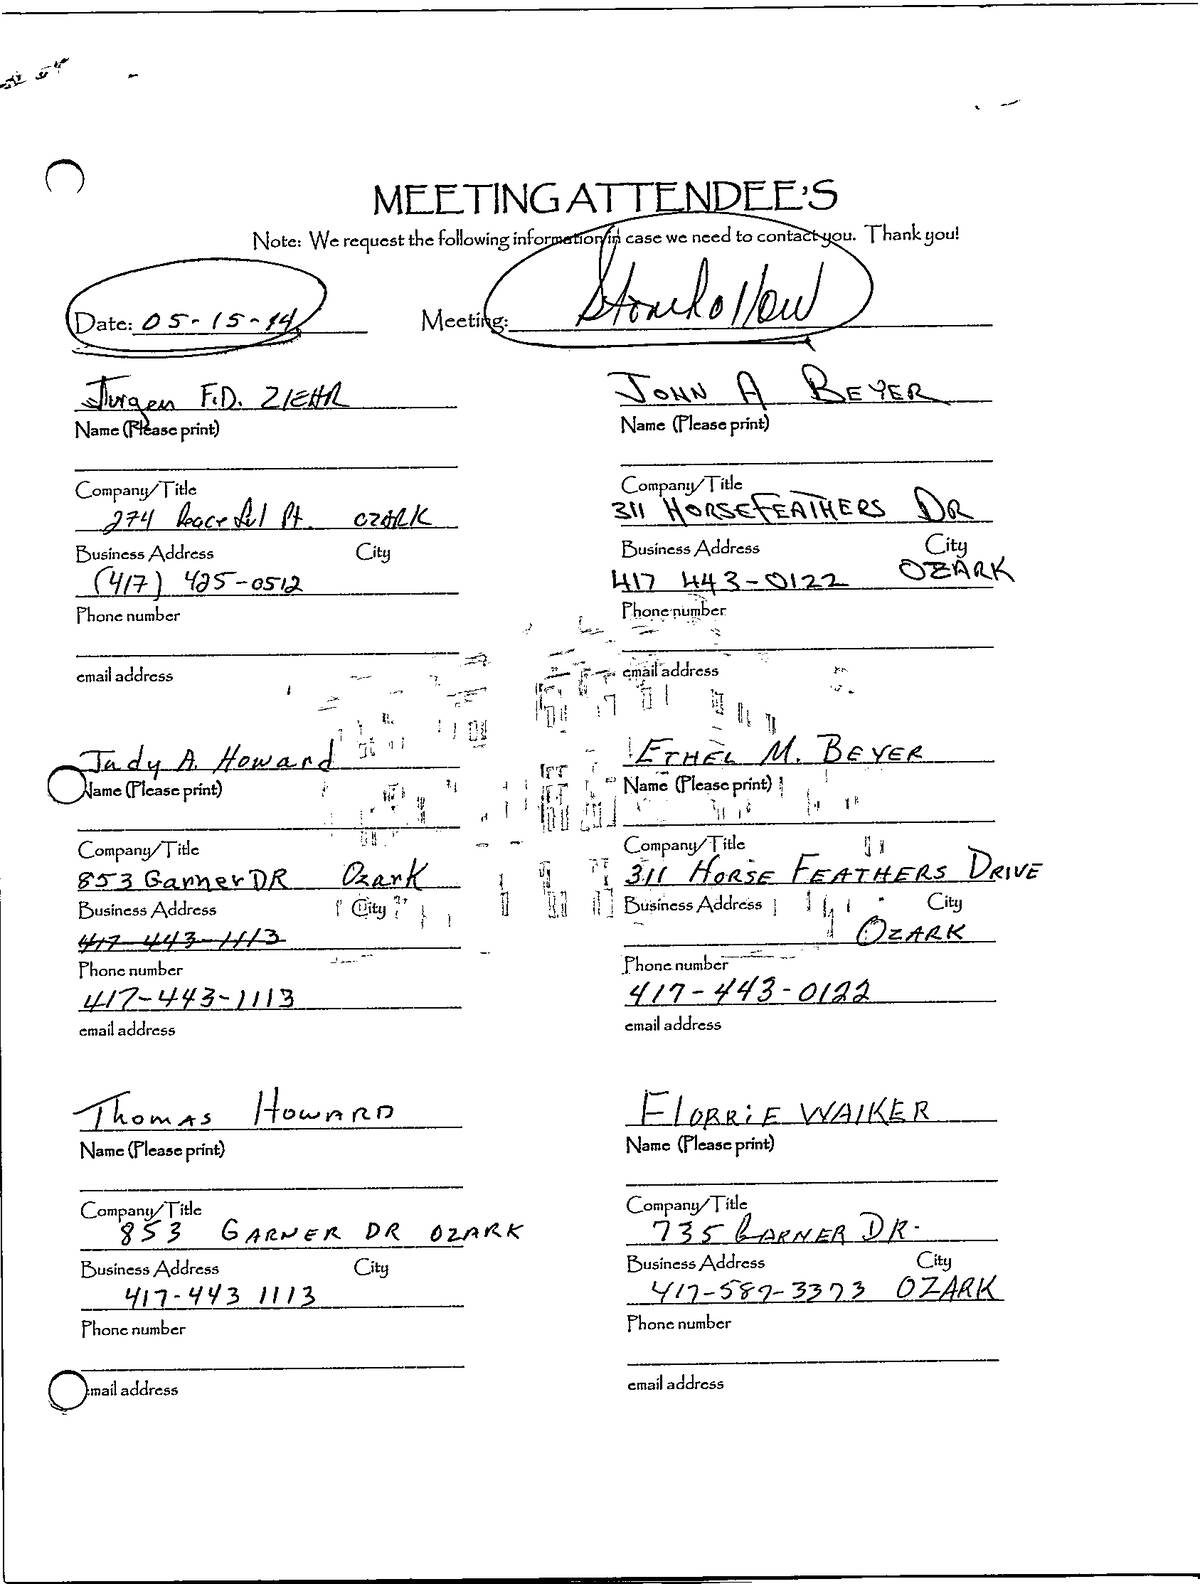 MEETING ATTENDEE'S
Note: We request the following information in case we need to contact you. Thank you!
Date: 05-15-14 Meeting: Stonehollow
Jurgen F.D. ZIEHR
Name (Please print)
Company/Title
274 Peaceful Pt. OZARK
Business Address City
(417) 425-0512
Phone number
email address
JOHN A BEYER
Name (Please print)
Company/Title
311 HORSEFEATHERS DR
Business Address City
417 443-0122 OZARK
Phone number
email address
Judy A. Howard
Name (Please print)
Company/Title
853 Garner DR Ozark
Business Address City
417-443-1113
Phone number
417-443-1113
email address
ETHEL M. BEYER
Name (Please print)
Company/Title
311 HORSE FEATHERS DRIVE
Business Address City
OZARK
Phone number
417-443-0122
email address
THOMAS HOWARD
Name (Please print)
Company/Title
853 GARNER DR OZARK
Business Address City
417-443 1113
Phone number
email address
FLORRiE WALKER
Name (Please print)
Company/Title
735 GARNER DR.
Business Address City
417-587-3373 OZARK
Phone number
email address